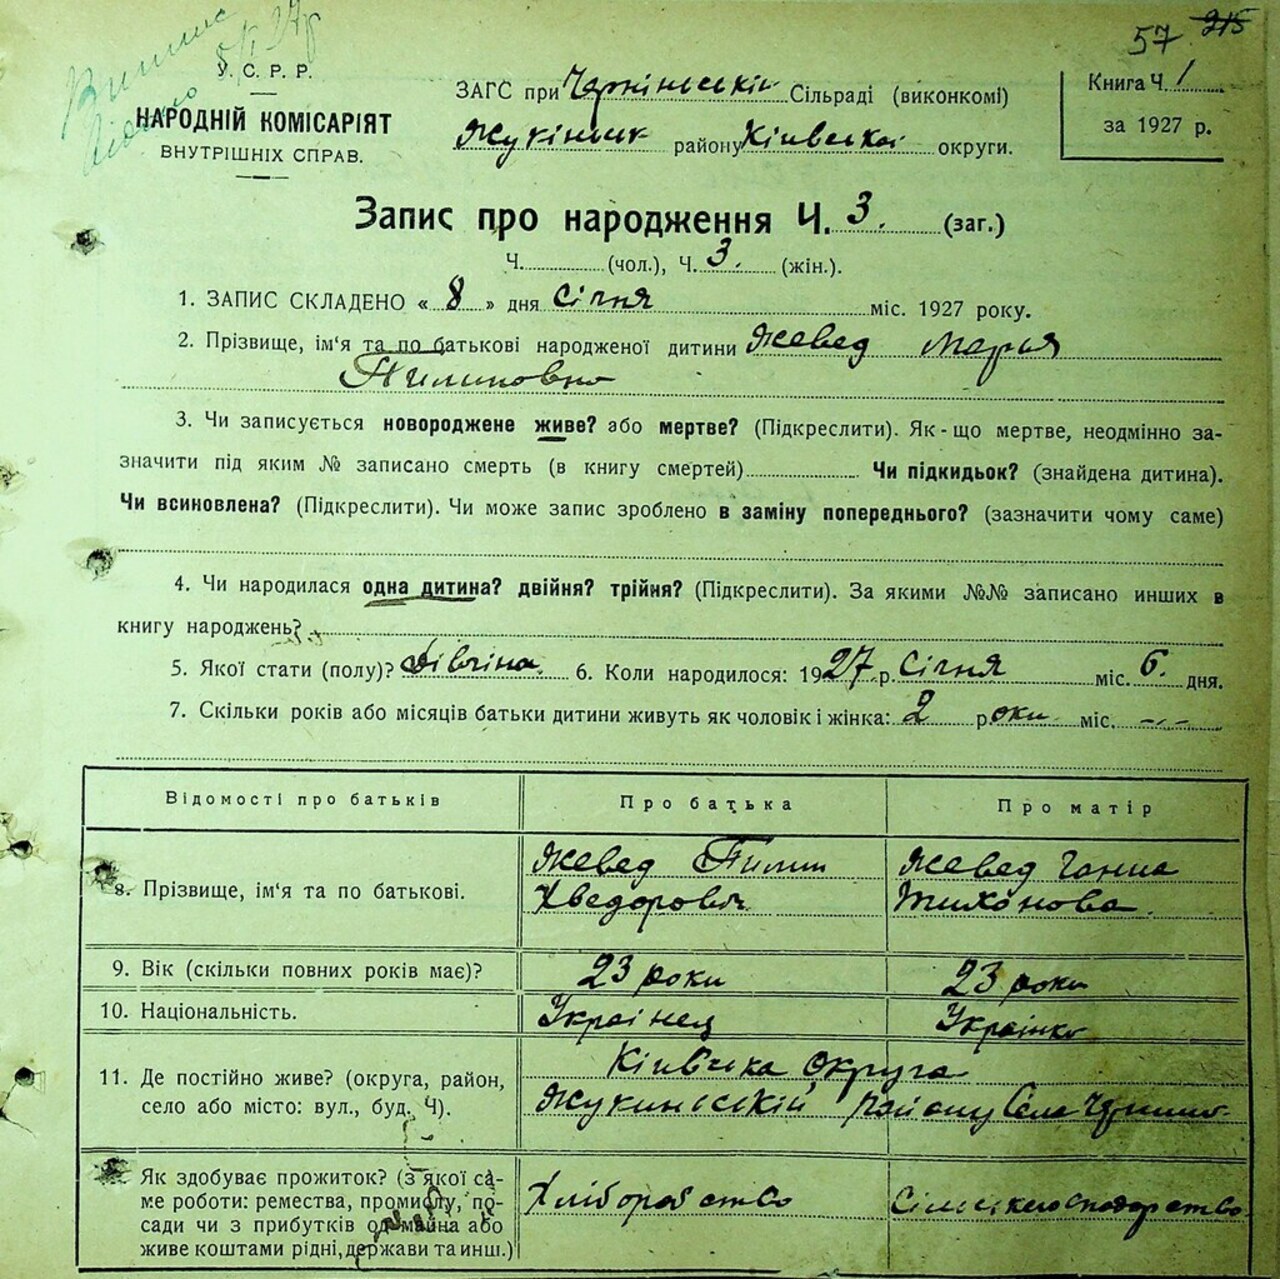 Випис
57 215
У. С. Р. Р.
НАРОДНІЙ КОМІСАРІЯТ
ВНУТРІШНІХ СПРАВ.
ЗАГС при Сільраді (виконкомі)
району Київської округи.
Книга Ч. 1
за 1927 р.
Запис про народження Ч. 3. (заг.)
Ч. (чол.), Ч. 3. (жін.).
1. ЗАПИС СКЛАДЕНО « 8 » дня Січня міс. 1927 року.
2. Прізвище, ім'я та по батькові народженої дитини Жевед Марья
Пилиповна
3. Чи записується новороджене живе? або мертве? (Підкреслити). Як-що мертве, неодмінно за-
значити під яким № записано смерть (в книгу смертей) Чи підкидьок? (знайдена дитина).
Чи всиновлена? (Підкреслити). Чи може запис зроблено в заміну попереднього? (зазначити чому саме)
4. Чи народилася одна дитина? двійня? трійня? (Підкреслити). За якими №№ записано инших в
книгу народжень?
5. Якої стати (полу)? Дівчіна. 6. Коли народилося: 1927 р. Січня міс. 6. дня.
7. Скільки років або місяців батьки дитини живуть як чоловік і жінка: 2 роки міс. -.-
Відомості про батьків Про батька Про матір
8. Прізвище, ім'я та по батькові. Жевед Пилип Хведорович Жевед Ганна Тихонова
9. Вік (скільки повних років має)? 23 роки 23 роки
10. Національність. Українец Українка
11. Де постійно живе? (округа, район, Київська Округа
село або місто: вул., буд. Ч). Жукинський району Село
Як здобуває прожиток? (з якої са-
ме роботи: ремества, промислу, по- Хліборобство Сільськегосподарство
сади чи з прибутків од майна або
живе коштами рідні, держави та инш.)